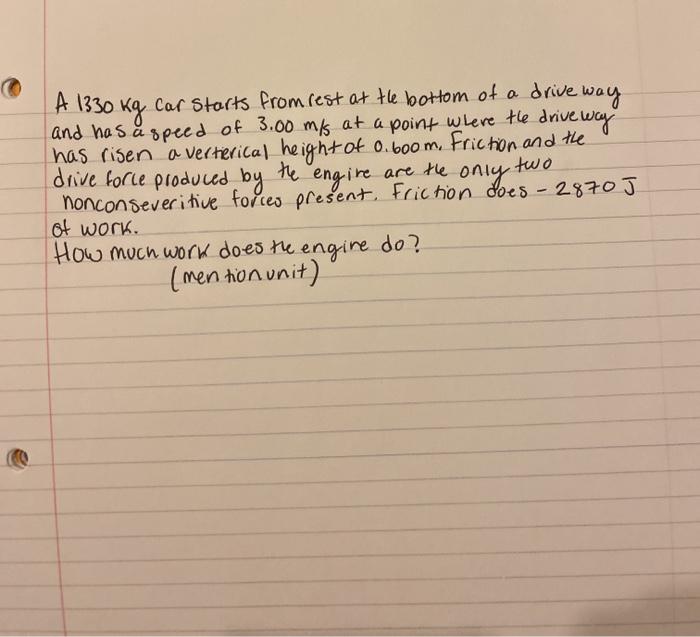 A 1330 kg car starts from rest at the bottom of a drive way
and has a speed of 3.00 m/s at a point where the driveway
has risen a verterical height of 0.600m. Friction and the
drive force produced by the engine are the only two
nonconseveritive forces present. Friction does -2870 J
of work.
How much work does the engine do?
(mention unit)